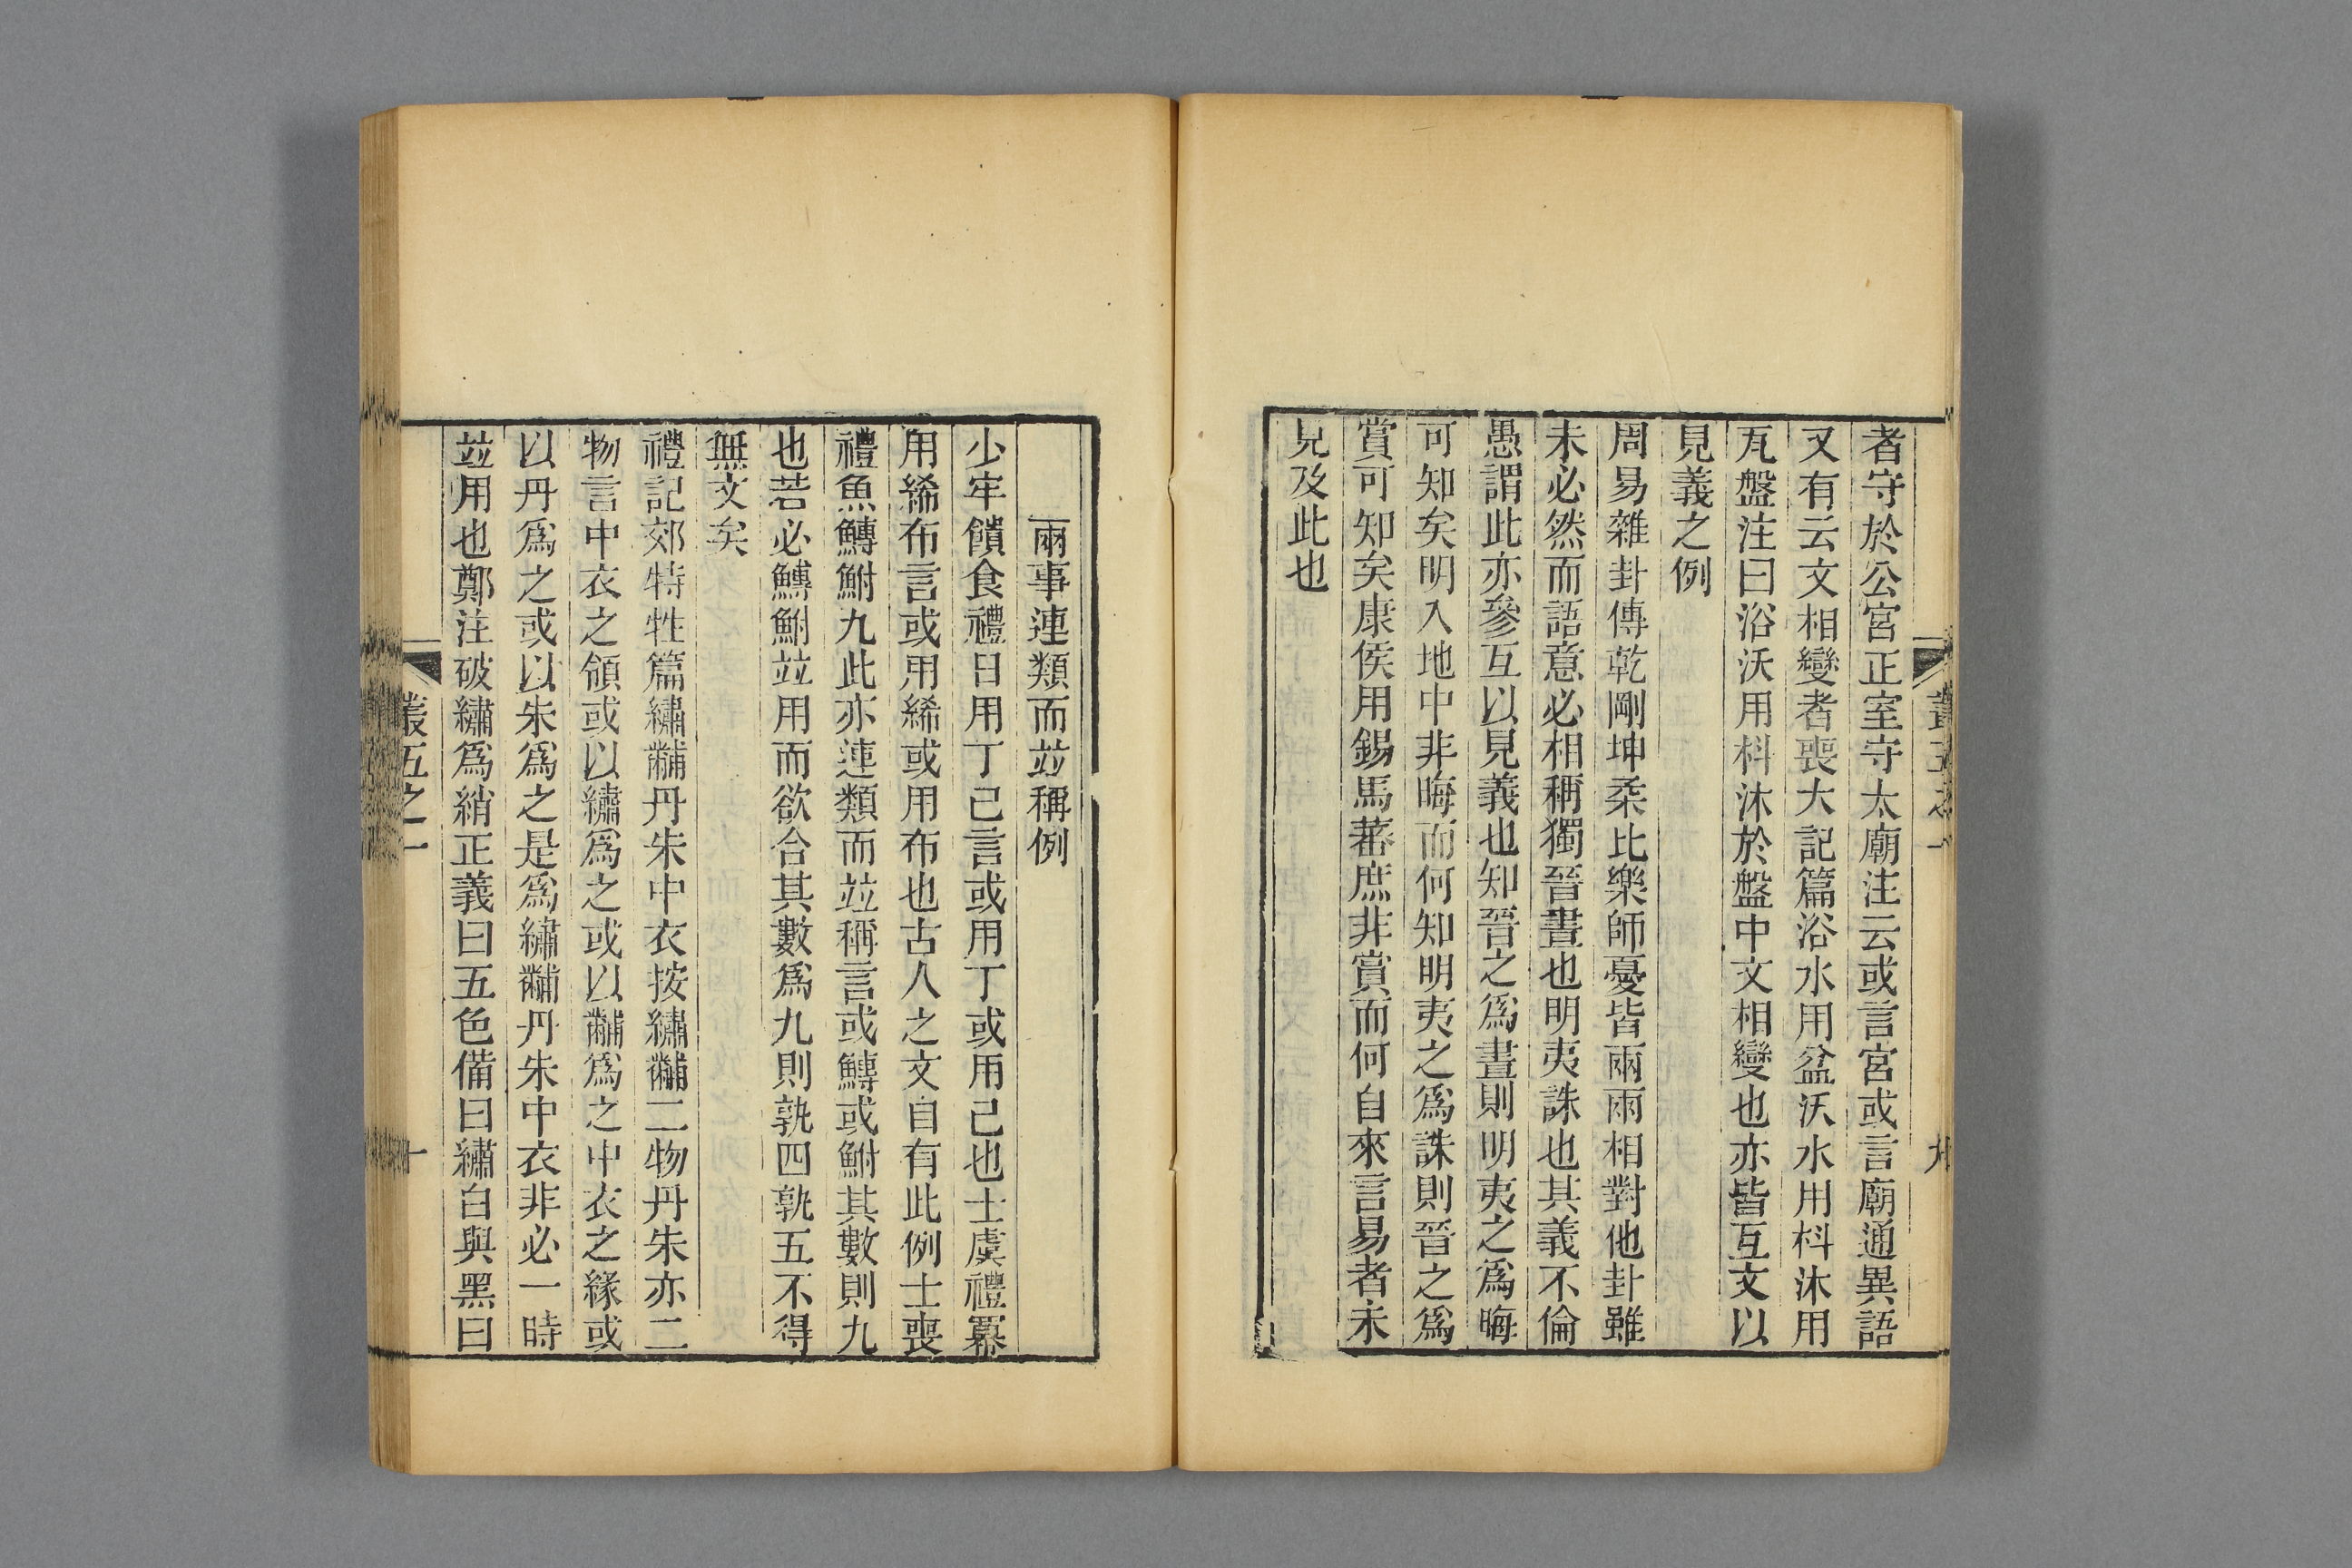 者守於公宮正室守太廟注云或言宮或言廟通異語
又有云文相變者喪大記篇浴水用盆沃水用枓沐用
瓦盤注曰浴沃用枓沐於盤中文相變也亦皆互文以
見義之例
周易雜卦傳乾剛坤柔比樂師憂皆兩兩相對他卦雖
未必然而語意必相稱獨晉晝也明夷誅也其義不倫
愚謂此亦參互以見義也知晉之爲晝則明夷之爲晦
可知矣明入地中非晦而何知明夷之爲誅則晉之爲
賞可知矣康侯用錫馬蕃庶非賞而何自來言易者未
見及此也
兩事連類而竝稱例
少牢饋食禮日用丁己言或用丁或用己也士虞禮冪
用絺布言或用絺或用布也古人之文自有此例士喪
禮魚鱄鮒九此亦連類而竝稱言或鱄或鮒其數則九
也若必鱄鮒竝用而欲合其數爲九則孰四孰五不得
無文矣
禮記郊特牲篇繡黼丹朱中衣按繡黼二物丹朱亦二
物言中衣之領或以繡爲之或以黼爲之中衣之緣或
以丹爲之或以朱爲之是爲繡黼丹朱中衣非必一時
竝用也鄭注破繡爲綃正義曰五色備曰繡白與黑曰
叢五之一
十